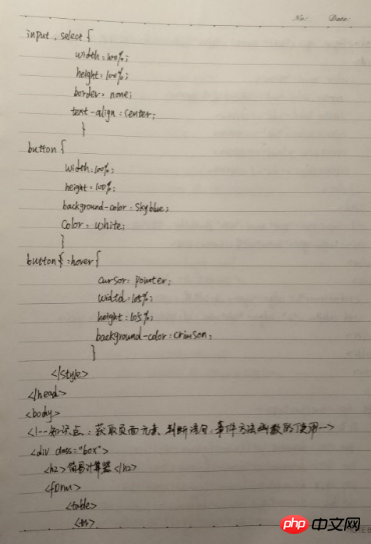 No: Date:
input, select {
width: 100%;
height: 100%;
border: none;
text-align: center;
}
button {
width: 100%;
height: 100%;
background-color: skyblue;
color: white;
}
button :hover {
cursor: pointer;
width: 105%;
height: 105%;
background-color: crimson;
}
</style>
</head>
<body>
<!--知识点: 获取页面元素, 判断语句, 事件方法函数的使用-->
<div class="box">
<h2>简易计算器</h2>
<form>
<table>
<tr>
php 中文网